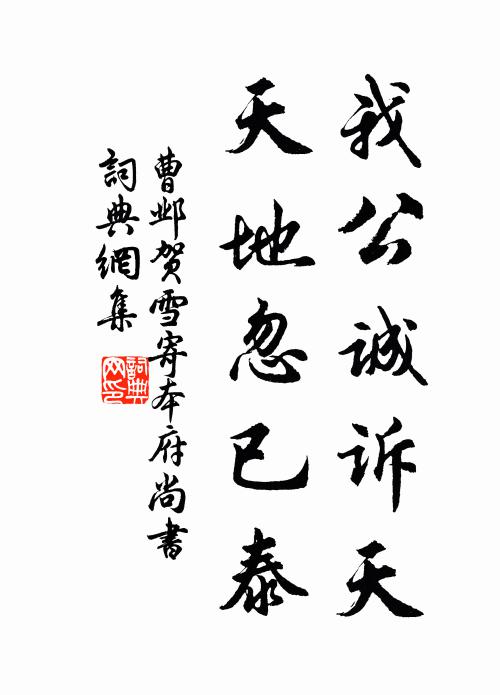 我公诚诉天
天地忽已泰
曹邺贺雪寄本府尚書
詞典網集
詞典網印